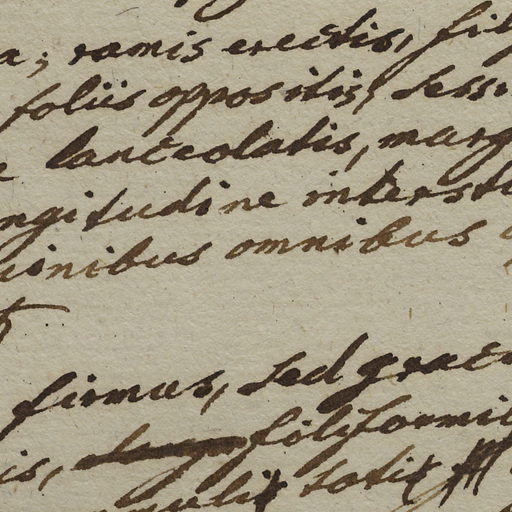 a; ramis erectis, fil
foliis oppositis, sessi
e lanceolatis, marg
ngitudine interst
inibus omnibus
firmus, sed grac
is, filiformi
toti